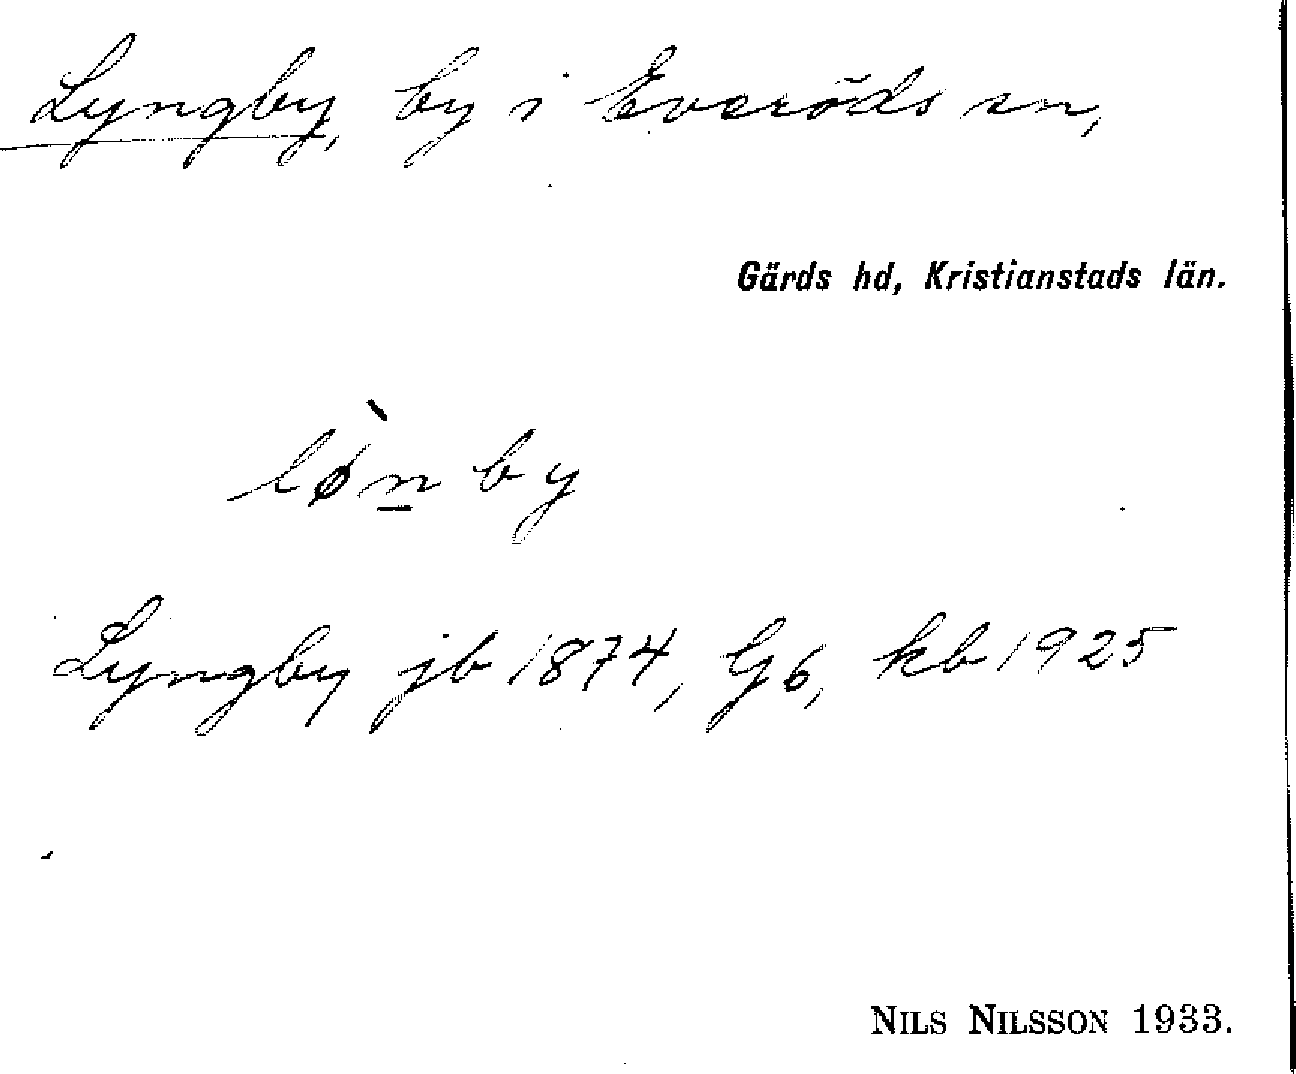 Lyngby, by i Everöds sn,
Gärds hd, Kristianstads län.
lø̀n̲by
Lyngby jb 1874, G6, kb 1925
NILS NILSSON 1933.